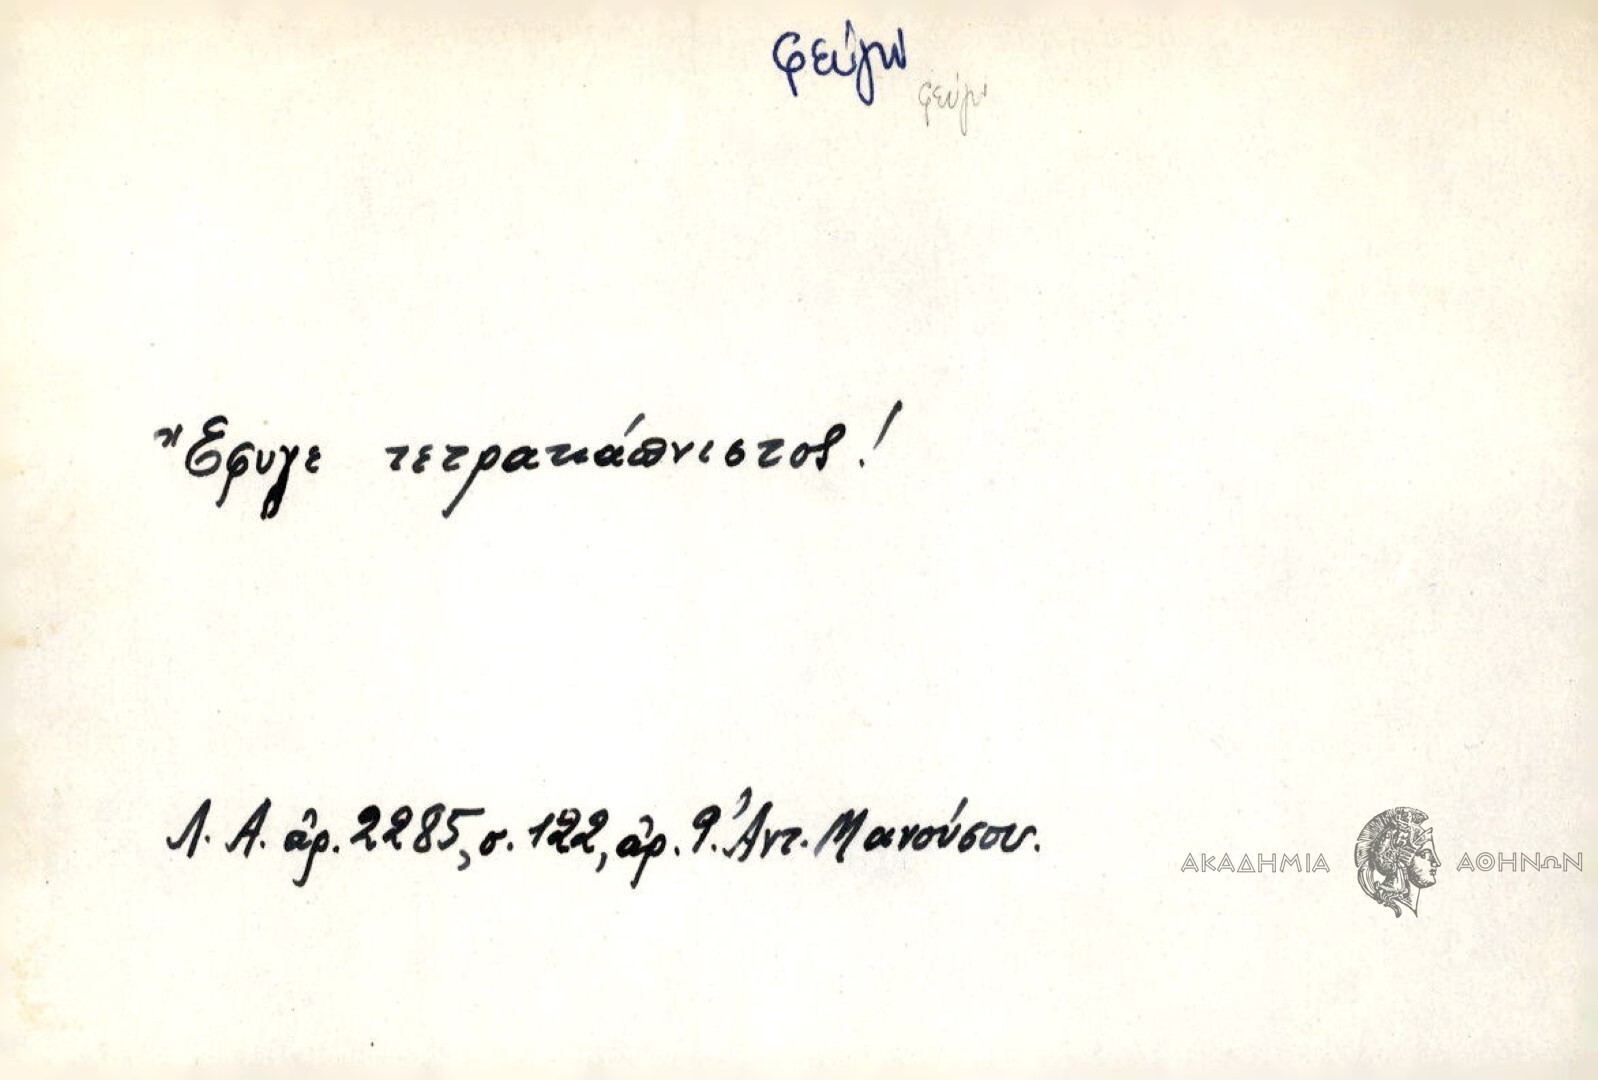 φεύγω
φεύγω
Ἔφυγε τετρακάπνιστος!
Λ. Α. ἀρ. 2285, σ. 122, ἀρ. 9. Ἀντ. Μανούσου.
ΑΚΑΔΗΜΙΑ ΑΘΗΝΩΝ